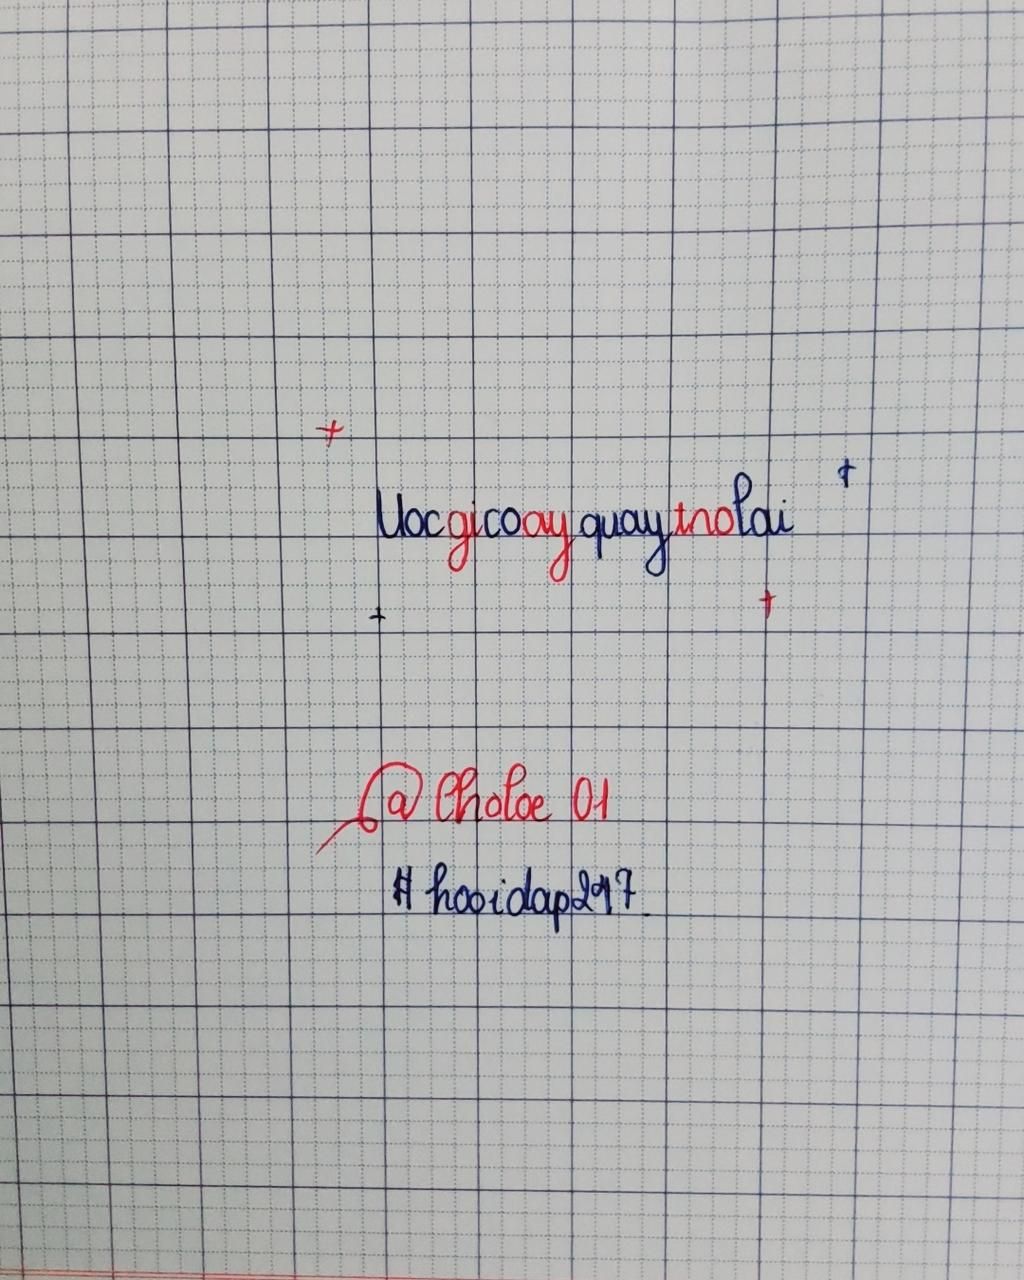 Uocgicoayquaytnolai
@Choloe 01
#hooidap247